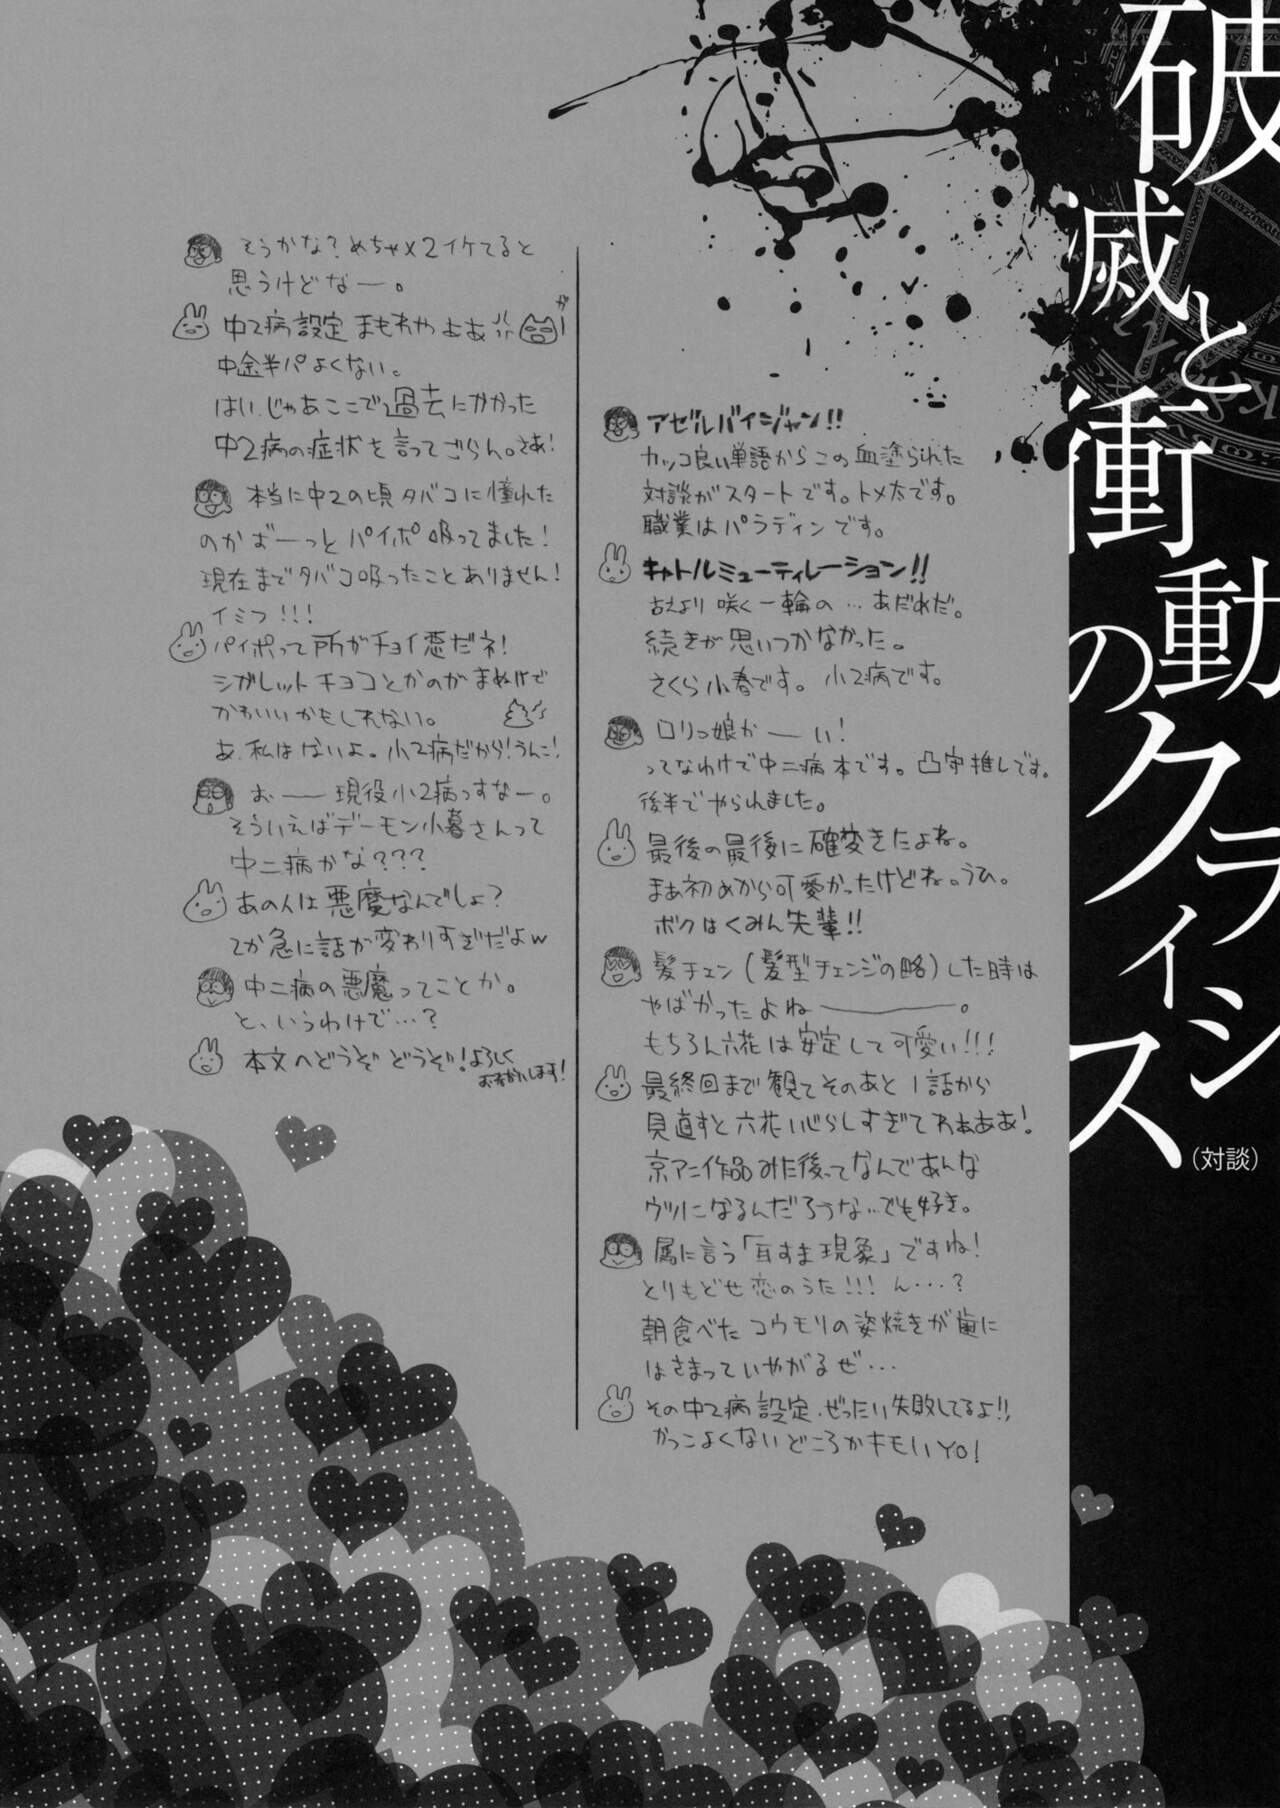 破滅と衝動のクライシス
(対談)
アゼルバイジャン!!
カッコ良い単語からこの血塗られた
対談がスタートです。トメ太です。
職業はパラディンです。
キャトルミューティレーション!!
古えより咲く一輪の…あだれだ。
続きが思いつかなかった。
さくら小春です。小2病です。
ロリっ娘かーい!
ってなわけで中二病本です。凸守推しです。
後半でやられました。
最後の最後に確変きたよね。
まぁ初めから可愛かったけどね。うひ。
ボクはくみん先輩!!
髪チェン(髪型チェンジの略)した時は
やばかったよねー。
もちろん六花は安定して可愛い!!!
最終回まで観てそのあと1話から
見直すと六花いじらしすぎてわぁああ!
京アニ作品みた後ってなんであんな
ウツになるんだろうな…でも好き。
属に言う「耳すま現象」ですね!
とりもどせ恋のうた!!!ん…?
朝食べたコウモリの姿焼きが歯に
はさまっていやがるぜ…
その中2病設定、ぜったい失敗してるよ!!
かっこよくないどころかキモいYO!
そうかな?めちゃ×2イケてると
思うけどなー。
中2病設定まもれやぁぁ
がー
中途半パよくない。
はい、じゃあここで過去にかかった
中2病の症状を言ってごらん。さあ!
本当に中2の頃タバコに憧れた
のかずーっとパイポ吸ってました!
現在までタバコ吸ったことありません!
イミフ!!!
パイポって所がチョイ悪だネ!
シガレットチョコとかのがまぬけで
かわいいかもしれない。
あ、私はないよ。小2病だから!うんこ!
おー現役小2病っすなー。
そういえばデーモン小暮さんって
中二病かな???
あの人は悪魔なんでしょ?
てか急に話が変わりすぎだよw
中二病の悪魔ってことか。
と、いうわけで…?
本文へどうぞどうぞ!よろしく
お願いします!